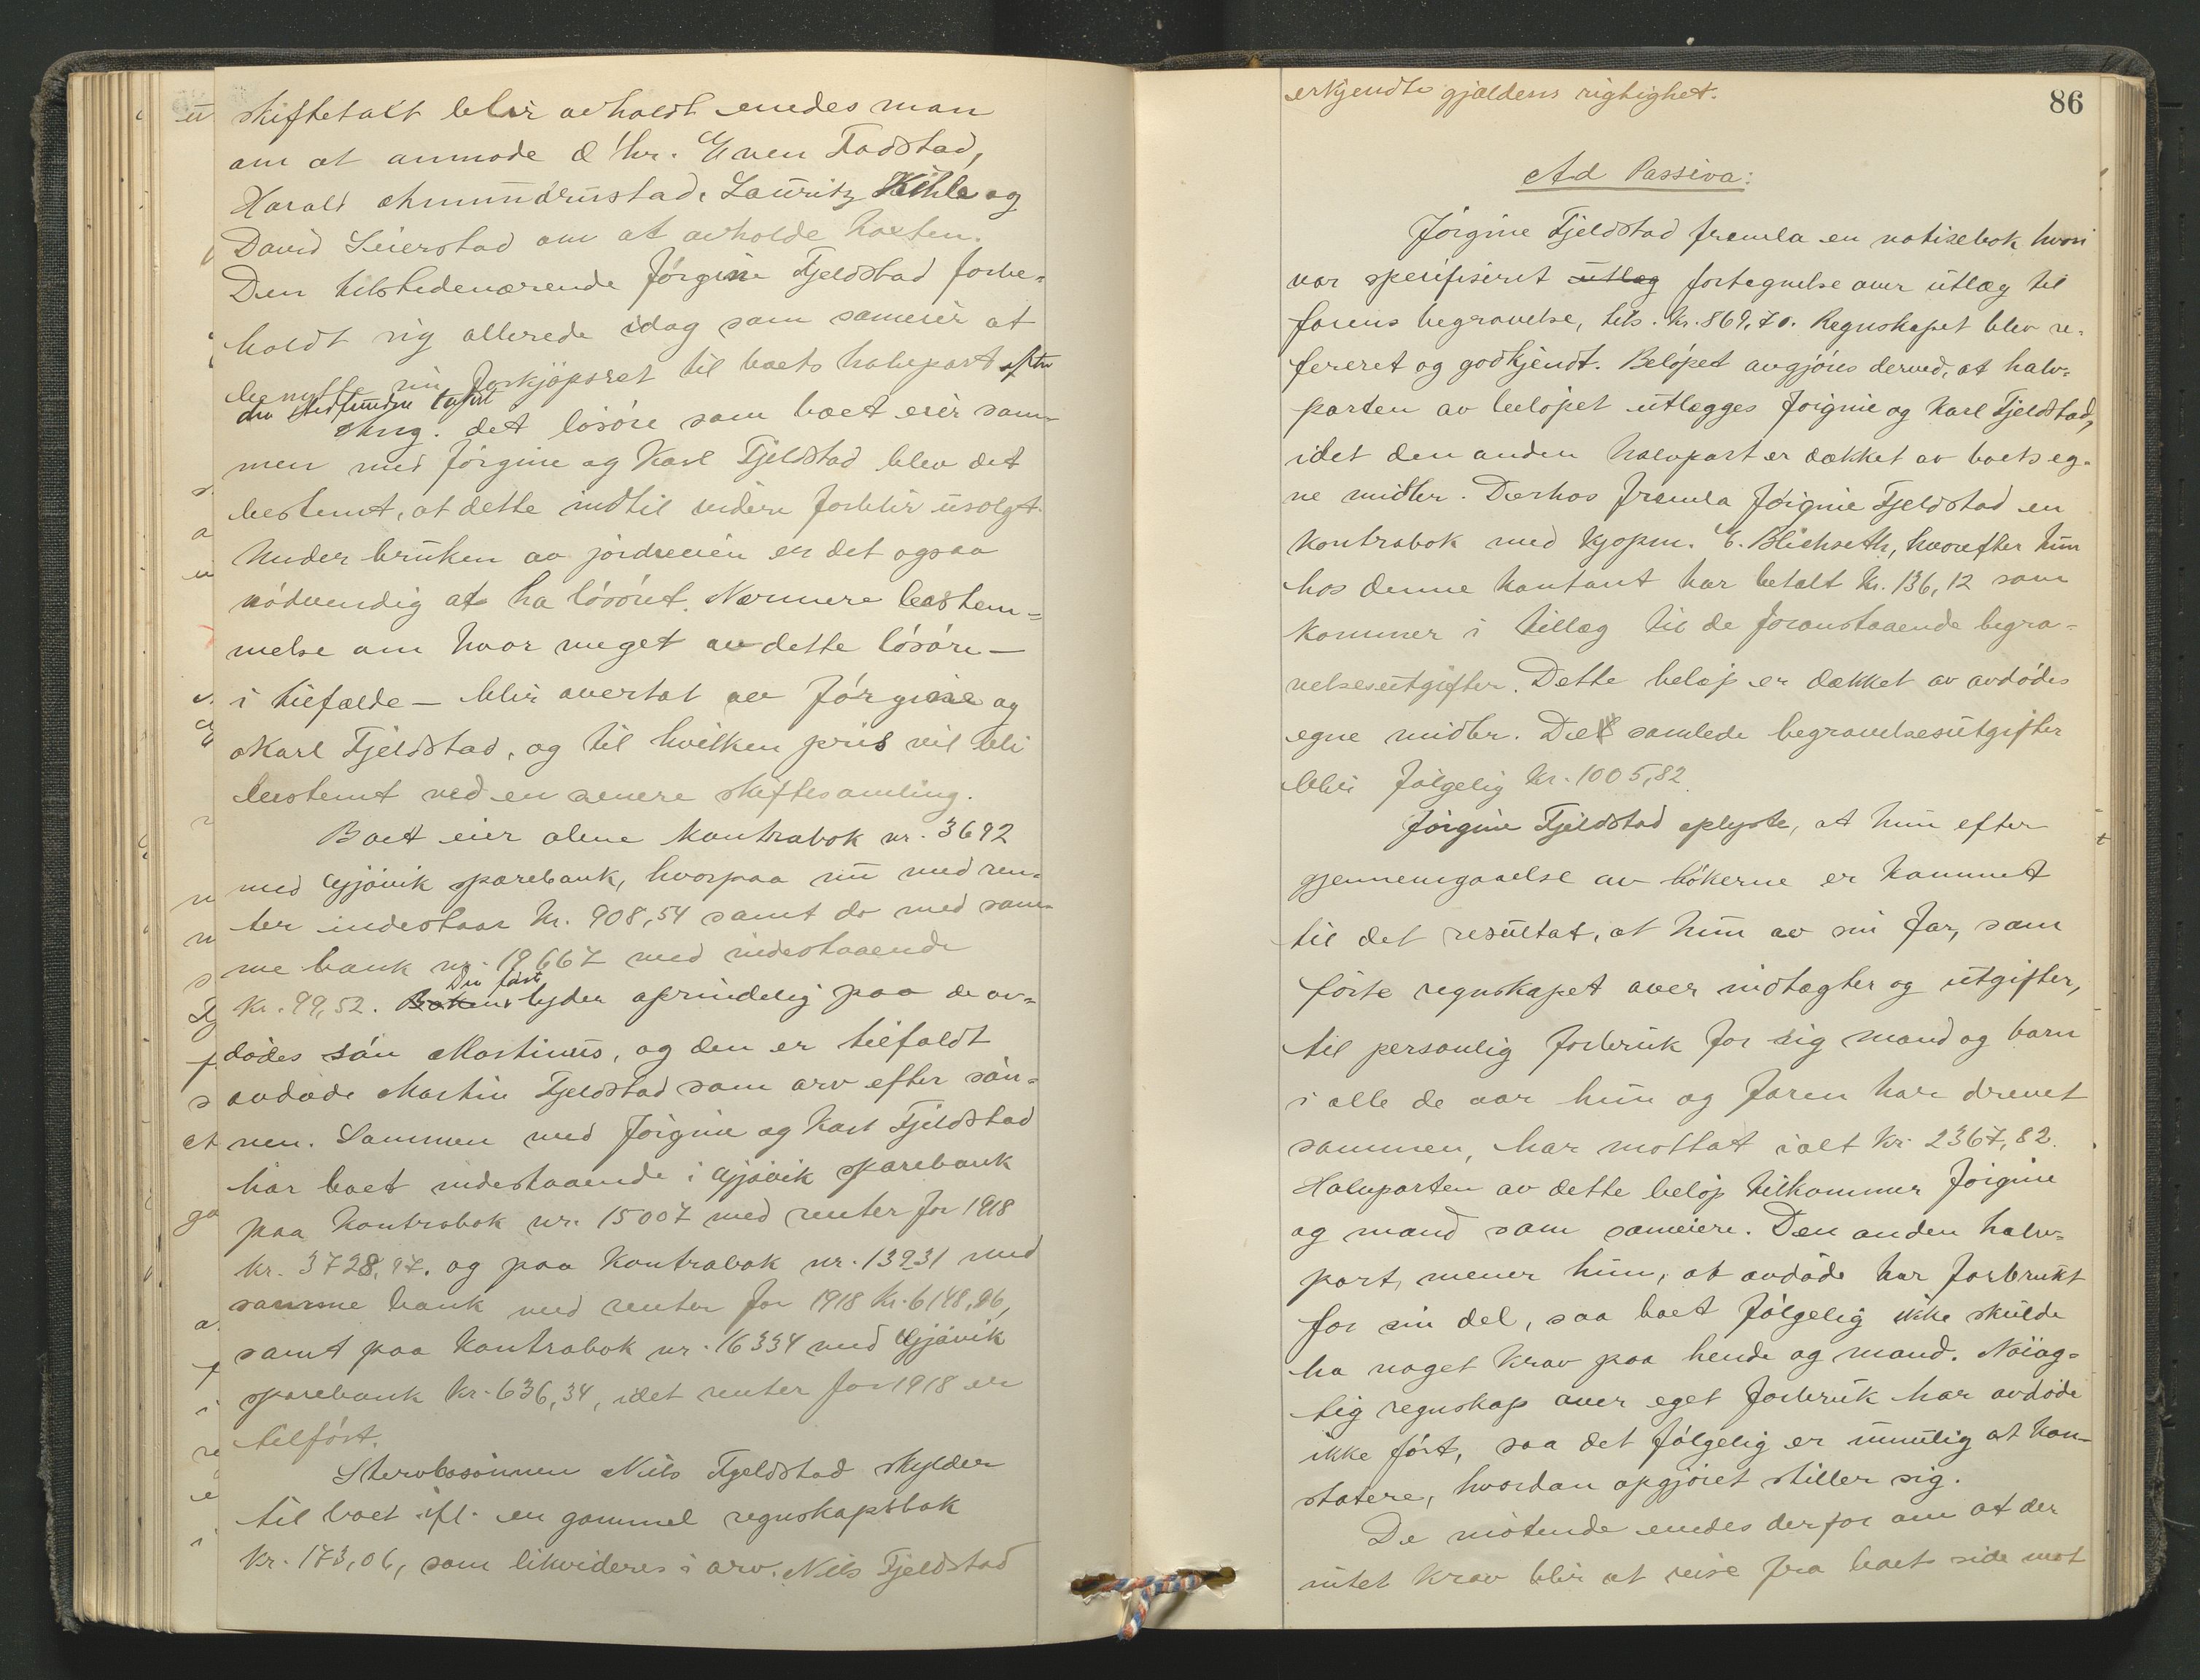 skiftetakt blir avholdt enedes man
om at anmode d'hr. Even Fodstad,
Harald Amundrustad, Lauritz Kihle og
David Seierstad om at avholde taksten.
Den tilstedeværende Jørgine Fjeldstad forbe-
holdt sig allerede idag som sameier at
benytte sin forkjøpsret til boets halvpart efter
den stedfundne takst
Ang. det løsøre som boet eier sam-
men med Jørgine og Karl Fjeldstad blev det
bestemt, at dette indtil videre forblir usolgt.
Under bruken av jordveien er det ogsaa
nødvendig at ha løsøret. Nærmere bestem-
melse om hvor meget av dette løsøre —
i tilfælde — blir overtat av Jørgine og
Karl Fjeldstad, og til hvilken pris vil bli
bestemt ved en senere skiftesamling.
Boet eier alene kontrabok nr. 3692
med Gjøvik sparebank, hvorpaa nu med ren-
ter indestaar kr. 908,54 samt do med sam-
me bank nr. 19667 med indestaaende
Den først
kr. 99,52. Boken lyder oprindelig paa de av-
dødes søn Martinus, og den er tilfaldt
avdøde Martin Fjeldstad som arv efter søn-
nen. Sammen med Jørgine og Karl Fjeldstad
har boet indestaaende i Gjøvik sparebank
paa kontrabok nr. 15007 med renter for 1918
kr. 3728,97. og paa kontrabok nr. 13931 med
samme bank med renter for 1918 kr. 6148,96,
samt paa kontrabok nr. 16334 med Gjøvik
sparebank kr. 636,34, idet renter for 1918 er
tilført.
Stervbosønnen Nils Fjeldstad skylder
til boet ifl. en gammel regnskapsbok
kr. 173,06, som likvideres i arv. Nils Fjeldstad
erkjendte gjældens rigtighet.
86
Ad Passiva:
Jørgine Fjeldstad fremla en notisebok hvori
var spesifiseret utlæg fortegnelse over utlæg til
farens begravelse, tils. kr. 869,70. Regnskapet blev re-
fereret og godkjendt. Beløpet avgjøres derved, at halv-
parten av beløpet utlægges Jørgine og Karl Fjeldstad,
idet den anden halvpart er dækket av boets eg-
ne midler. Derhos fremla Jørgine Fjeldstad en
kontrabok med kjøpm. E. Blichseth, hvorefter hun
hos denne kontant har betalt kr. 136,12 som
kommer i tillæg til de foranstaaende begra-
velsesutgifter. Dette beløp er dækket av avdødes
egne midler. De samlede begravelsesutgifter
blir følgelig kr. 1005,82.
Jørgine Fjeldstad oplyste, at hun efter
gjennemgaaelse av bøkerne er kommet
til det resultat, at hun av sin far, som
førte regnskapet over indtægter og utgifter,
til personlig forbruk for sig mand og barn
i alle de aar hun og faren har drevet
sammen, har mottat ialt kr. 2367,82.
Halvparten av dette beløp tilkommer Jørgine
og mand som sameiere. Den anden halv-
part, mener hun, at avdøde har forbrukt
for sin del, saa boet følgelig ikke skulde
ha noget krav paa hende og mand. Nøiag-
tig regnskap over eget forbruk har avdøde
ikke ført, saa det følgelig er umulig at kon-
statere, hvordan opgjøret stiller sig.
De møtende enedes derfor om at der
intet krav blir at reise fra boets side mot